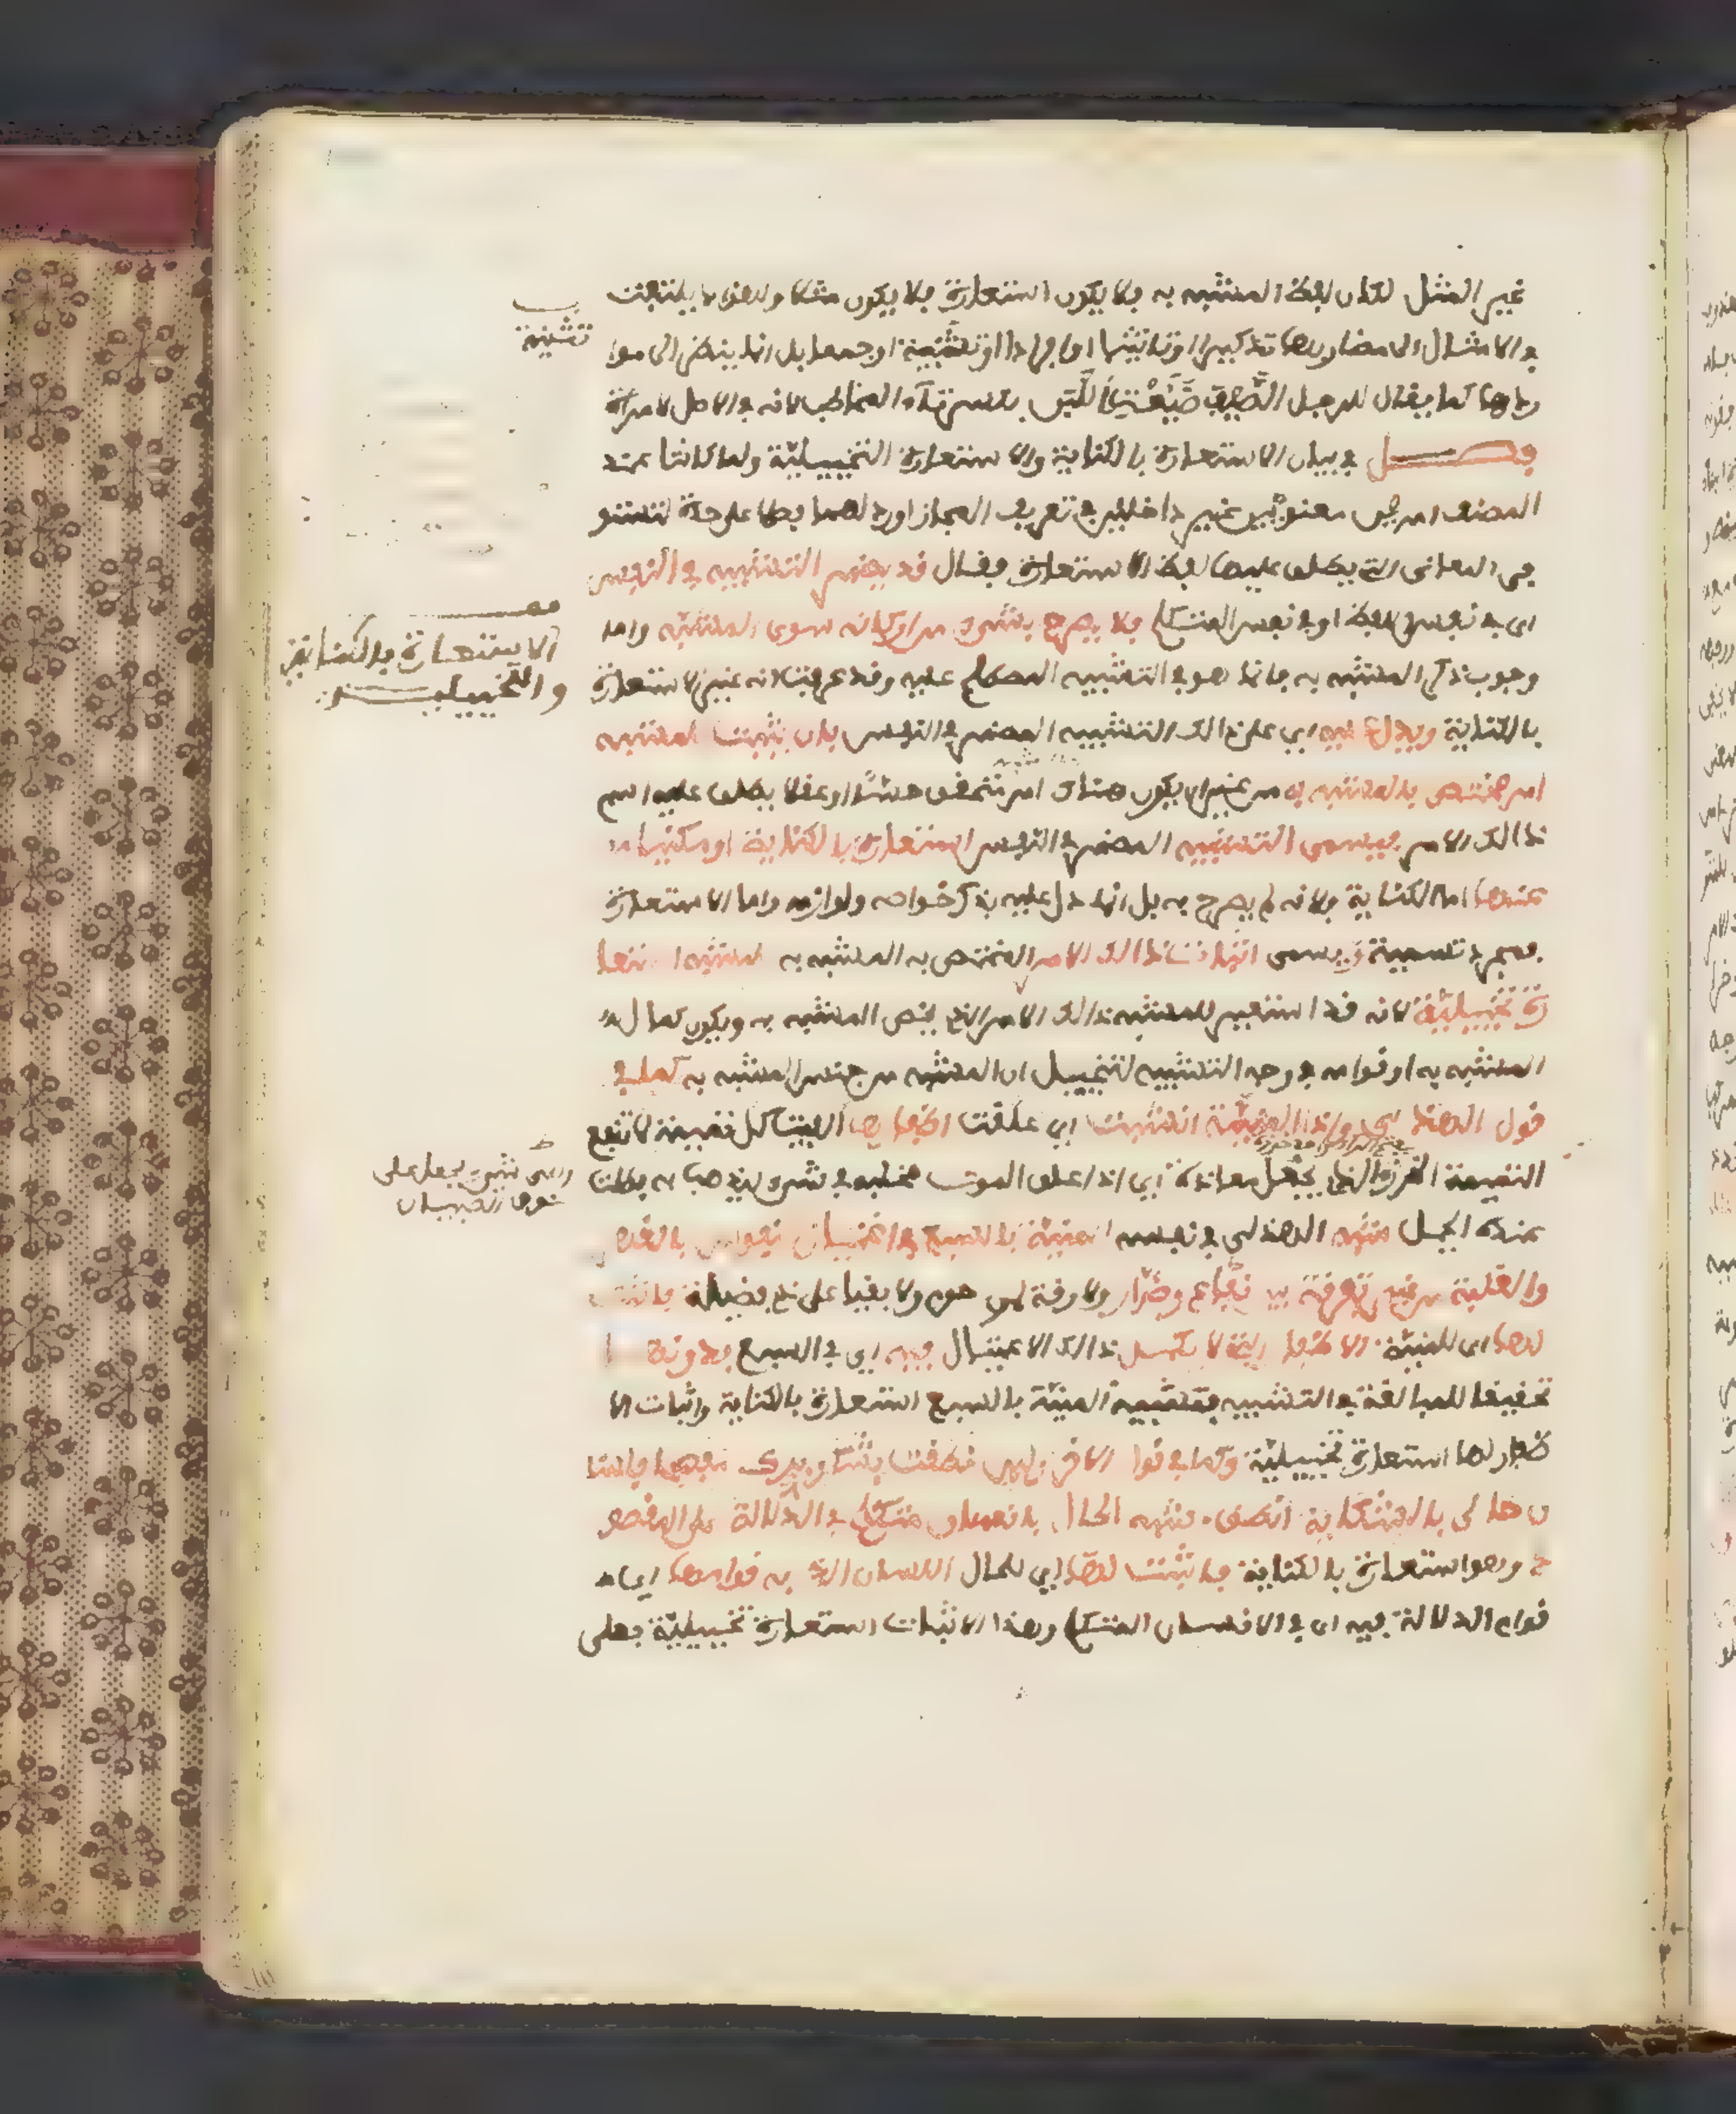 غير المثل لكان لفظ المشبه به فلا يكون استعارة فلا يكون مثلا ولهذا لا يلتفت
في الامثال الى مضاربها تذكيرا وتانيثا وافرادا وتثنية وجمعا بل انما ينظر الى موا
ردها كما يقال للرجل الصَّيْفَ ضَيَّعْتِ اللَّبَنَ بكسر تاء المخاطب لانه في الاصل لامراة
فصل في بيان الاستعارة بالكناية والاستعارة التخييليّة ولما كانتا عند
المصنف امرين معنويّين غير داخلين في تعريف المجاز اورد لهما فصلا على حدة لتستو
في المعاني التي يطلق عليها لفظ الاستعارة فقال قد يضمر التشبيه في النفس
اي في نفس اللفظ او في نفس المتكلم فلا يصرح بشيء من اركانه سوى المشبّه واما
وجوب ذكر المشبه به فانما هو في التشبيه المصطلح عليه وقد عرفت انه غير الاستعارة
بالكناية ويدل عليه اي على ذالك التشبيه المضمر في النفس بان يثبت للمشبه
امر مختص بالمشبه به من غير ان يكون هناك امر متحقق حسّا او عقلا يطلق عليه اسم
ذالك الامر فيسمى التشبيه المضمر في النفس استعارة بالكناية او مكنيا
عنها اما الكناية فلانه لم يصرح به بل انما دل عليه بذكر خواصه ولوازمه واما الاستعارة
فمجرد تسمية ويسمى اثبات ذالك الامر المختص به المشبه به للمشبه استعا
رة تخييليّة لانه قد استعير للمشبه ذالك الامر الذي يخص المشبه به وبه يكون كمال
المشبه به او قوامه في وجه التشبيه لتخييل ان المشبه من جنس المشبه به كما في
قول الهذلي واذا المنيّة انشبت اي علقت اظفارها الفيت كل تميمة لا تنفع
التميمة الخرزة التي تجعل معاذة اي اذا علق الموت مخلبه في شيء ليذهب به بطلت
عنده الحيل شبّه الهذلي في نفسه المنيّة بالسبع في اغتيال النفوس بالقهر
والغلبة من غير تفرقة بين نفّاع وضرّار ولا رقة لمرحوم ولا بقيا على ذي فضيلة فاثبت
لها اي للمنيّة الاظفار التي لا يكمل ذالك الاغتيال فيه اي في السبع بدونها
تحقيقا للمبالغة في التشبيه فتشبيه المنيّة بالسبع استعارة بالكناية واثبات الا
ظفار لها استعارة تخييليّة وكما في قول الاخر ولئن نطقت بشكر برك مفصحا فلسا
ن حالي بالشكاية انطق شبه الحال بانسان متكلم في الدلالة على المقصو
د وهو استعارة بالكناية فاثبت لها اي للحال اللسان الذي به قوامها اي
قوام الدلالة فيه اي في الانسان المتكلم وهذا الاثبات استعارة تخييليّة فعلى
تثنية
الاستعارة بالكناية
والتخييلية
شيء يجعل على